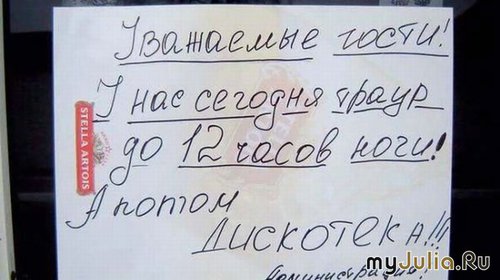 Уважаемые гости!
У нас сегодня траур
до 12 часов ночи!
А потом
Дискотека!!!
Администрация!
STELLA ARTOIS
myJulia.Ru